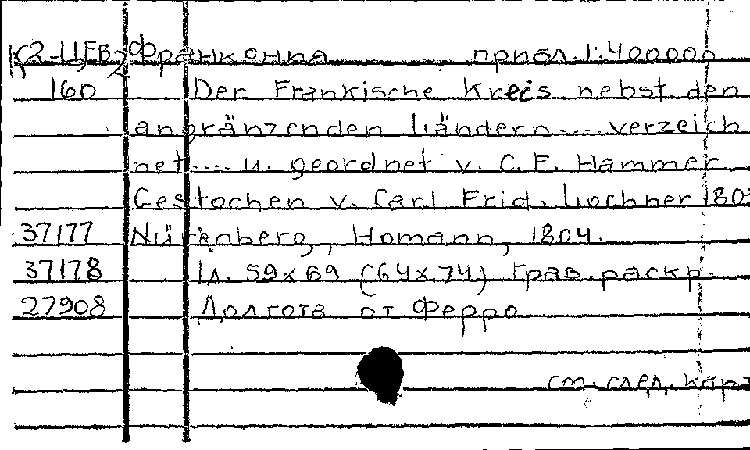 К2-ЦЕВ2 Франкония прибл. 1:400000
160 Der Frankische Kreis nebst den
angränzenden Ländern .... verzeich
net .... u. geordnet v. C. F. Hammer.
Gestochen v. Carl Frid. Lochner 180
37177 Nürenberg, Homann, 1804.
37178 1 л. 59х69 (64х74) Грав. раскр.
27908 Долгота от Ферро
см. след. карт